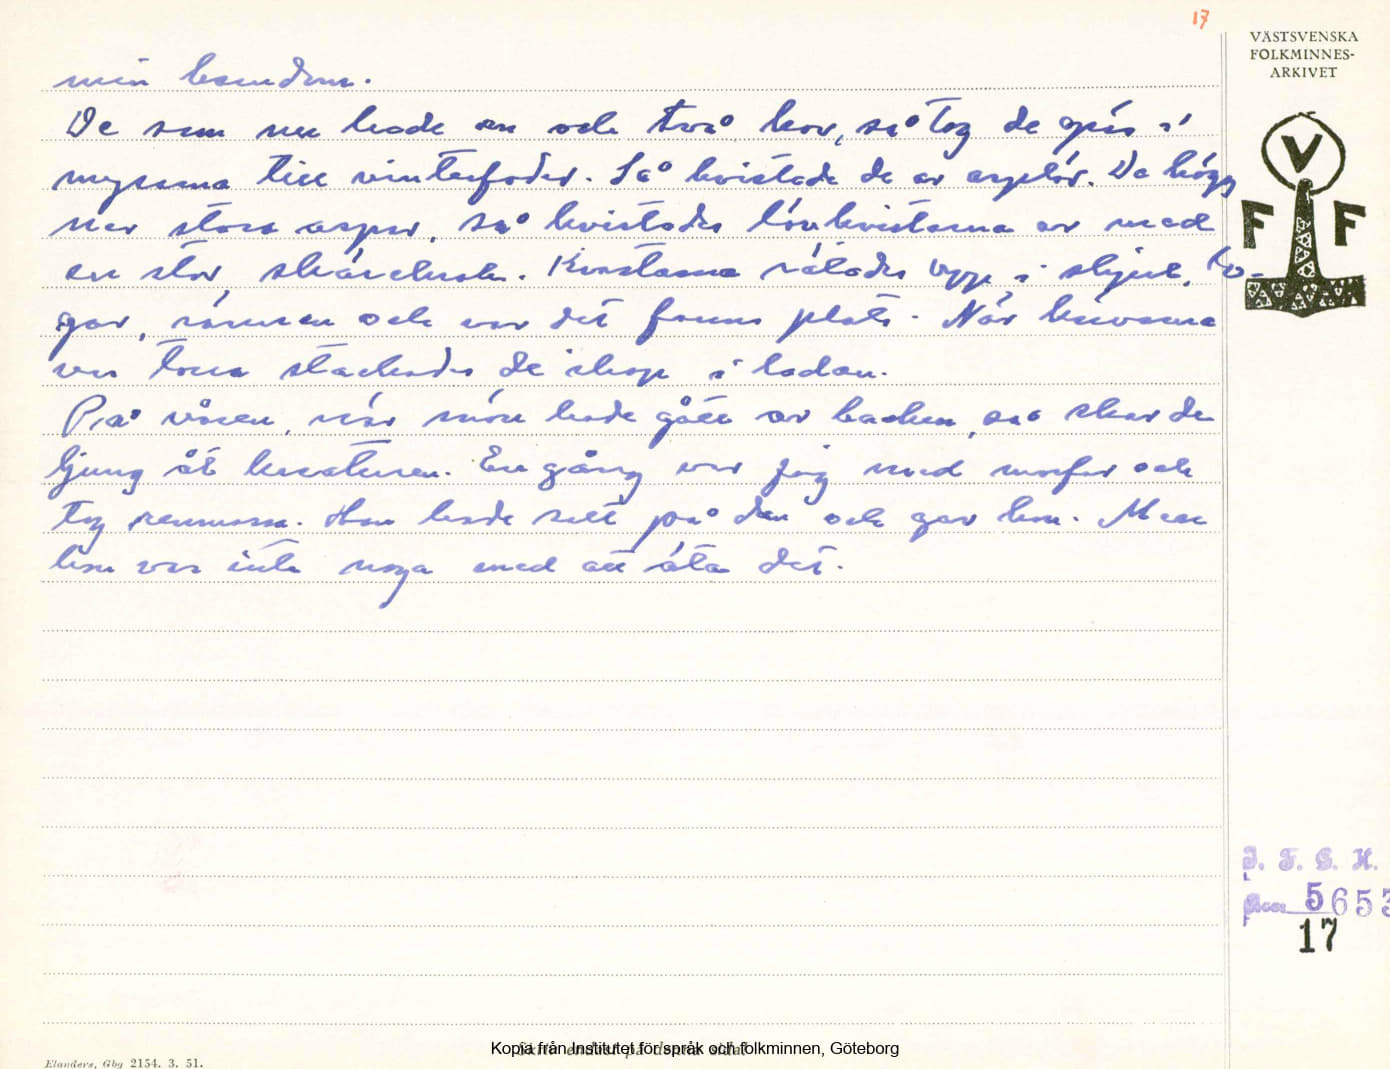 17
VÄSTSVENSKA
FOLKMINNES-
ARKIVET
V
F F
min barndom.
De som nu hade en och två kor, så tog de gräs i
myrarna till vinterfoder. Så kvistade de av asplöv. De högg
ner stora aspar, så kvistades lövkvistarna av med
en stor skäreknah. Kvastarna ställdes upp i skjul, lo-
gar, rännen och var det fanns plats. När kärvarna
var torra stackades de ihop i ladan.
På våren, när snön hade gått av backen, så skar de
ljung åt kreaturen. En gång var jag med morfar och
tog renmossa. Han hade salt på den och gav kon. Men
hon var inte noga med att äta det.
I. F. G. H.
Acc. 5653
17
Elanders, Gbg 2154. 3. 51.
Kopia från Institutet för språk och folkminnen, Göteborg